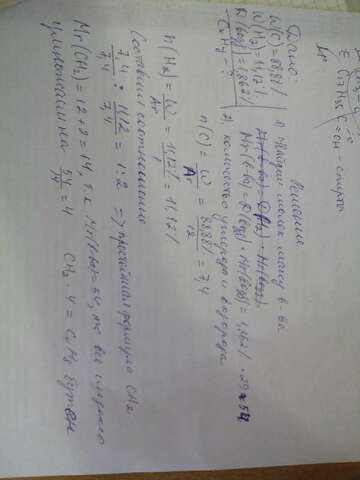 Дано:
W(C)=88,88%
W(H₂)=11,12%
D(возд)=1,862%
CxHy - ?
Решение
1) Найдём молек. массу в-ва
Mr(в-ва)=D(возд)·Mr(возд)=1,862%·29≈54
2) количество углерода и водорода
n(C)=W/Ar=88,88%/12=7,4
n(H₂)=W/Ar=11,12%/1=11,12%
Составим соотношение
7,4/7,4 : 11,12/7,4 = 1:2 => простейшая формула CH₂,
Mr(CH₂)=12+2=14, т.к Mr(в-ва)=54, то все индексы
умножаем на 54/14=4 CH₂·4=C₄H₈ бутен